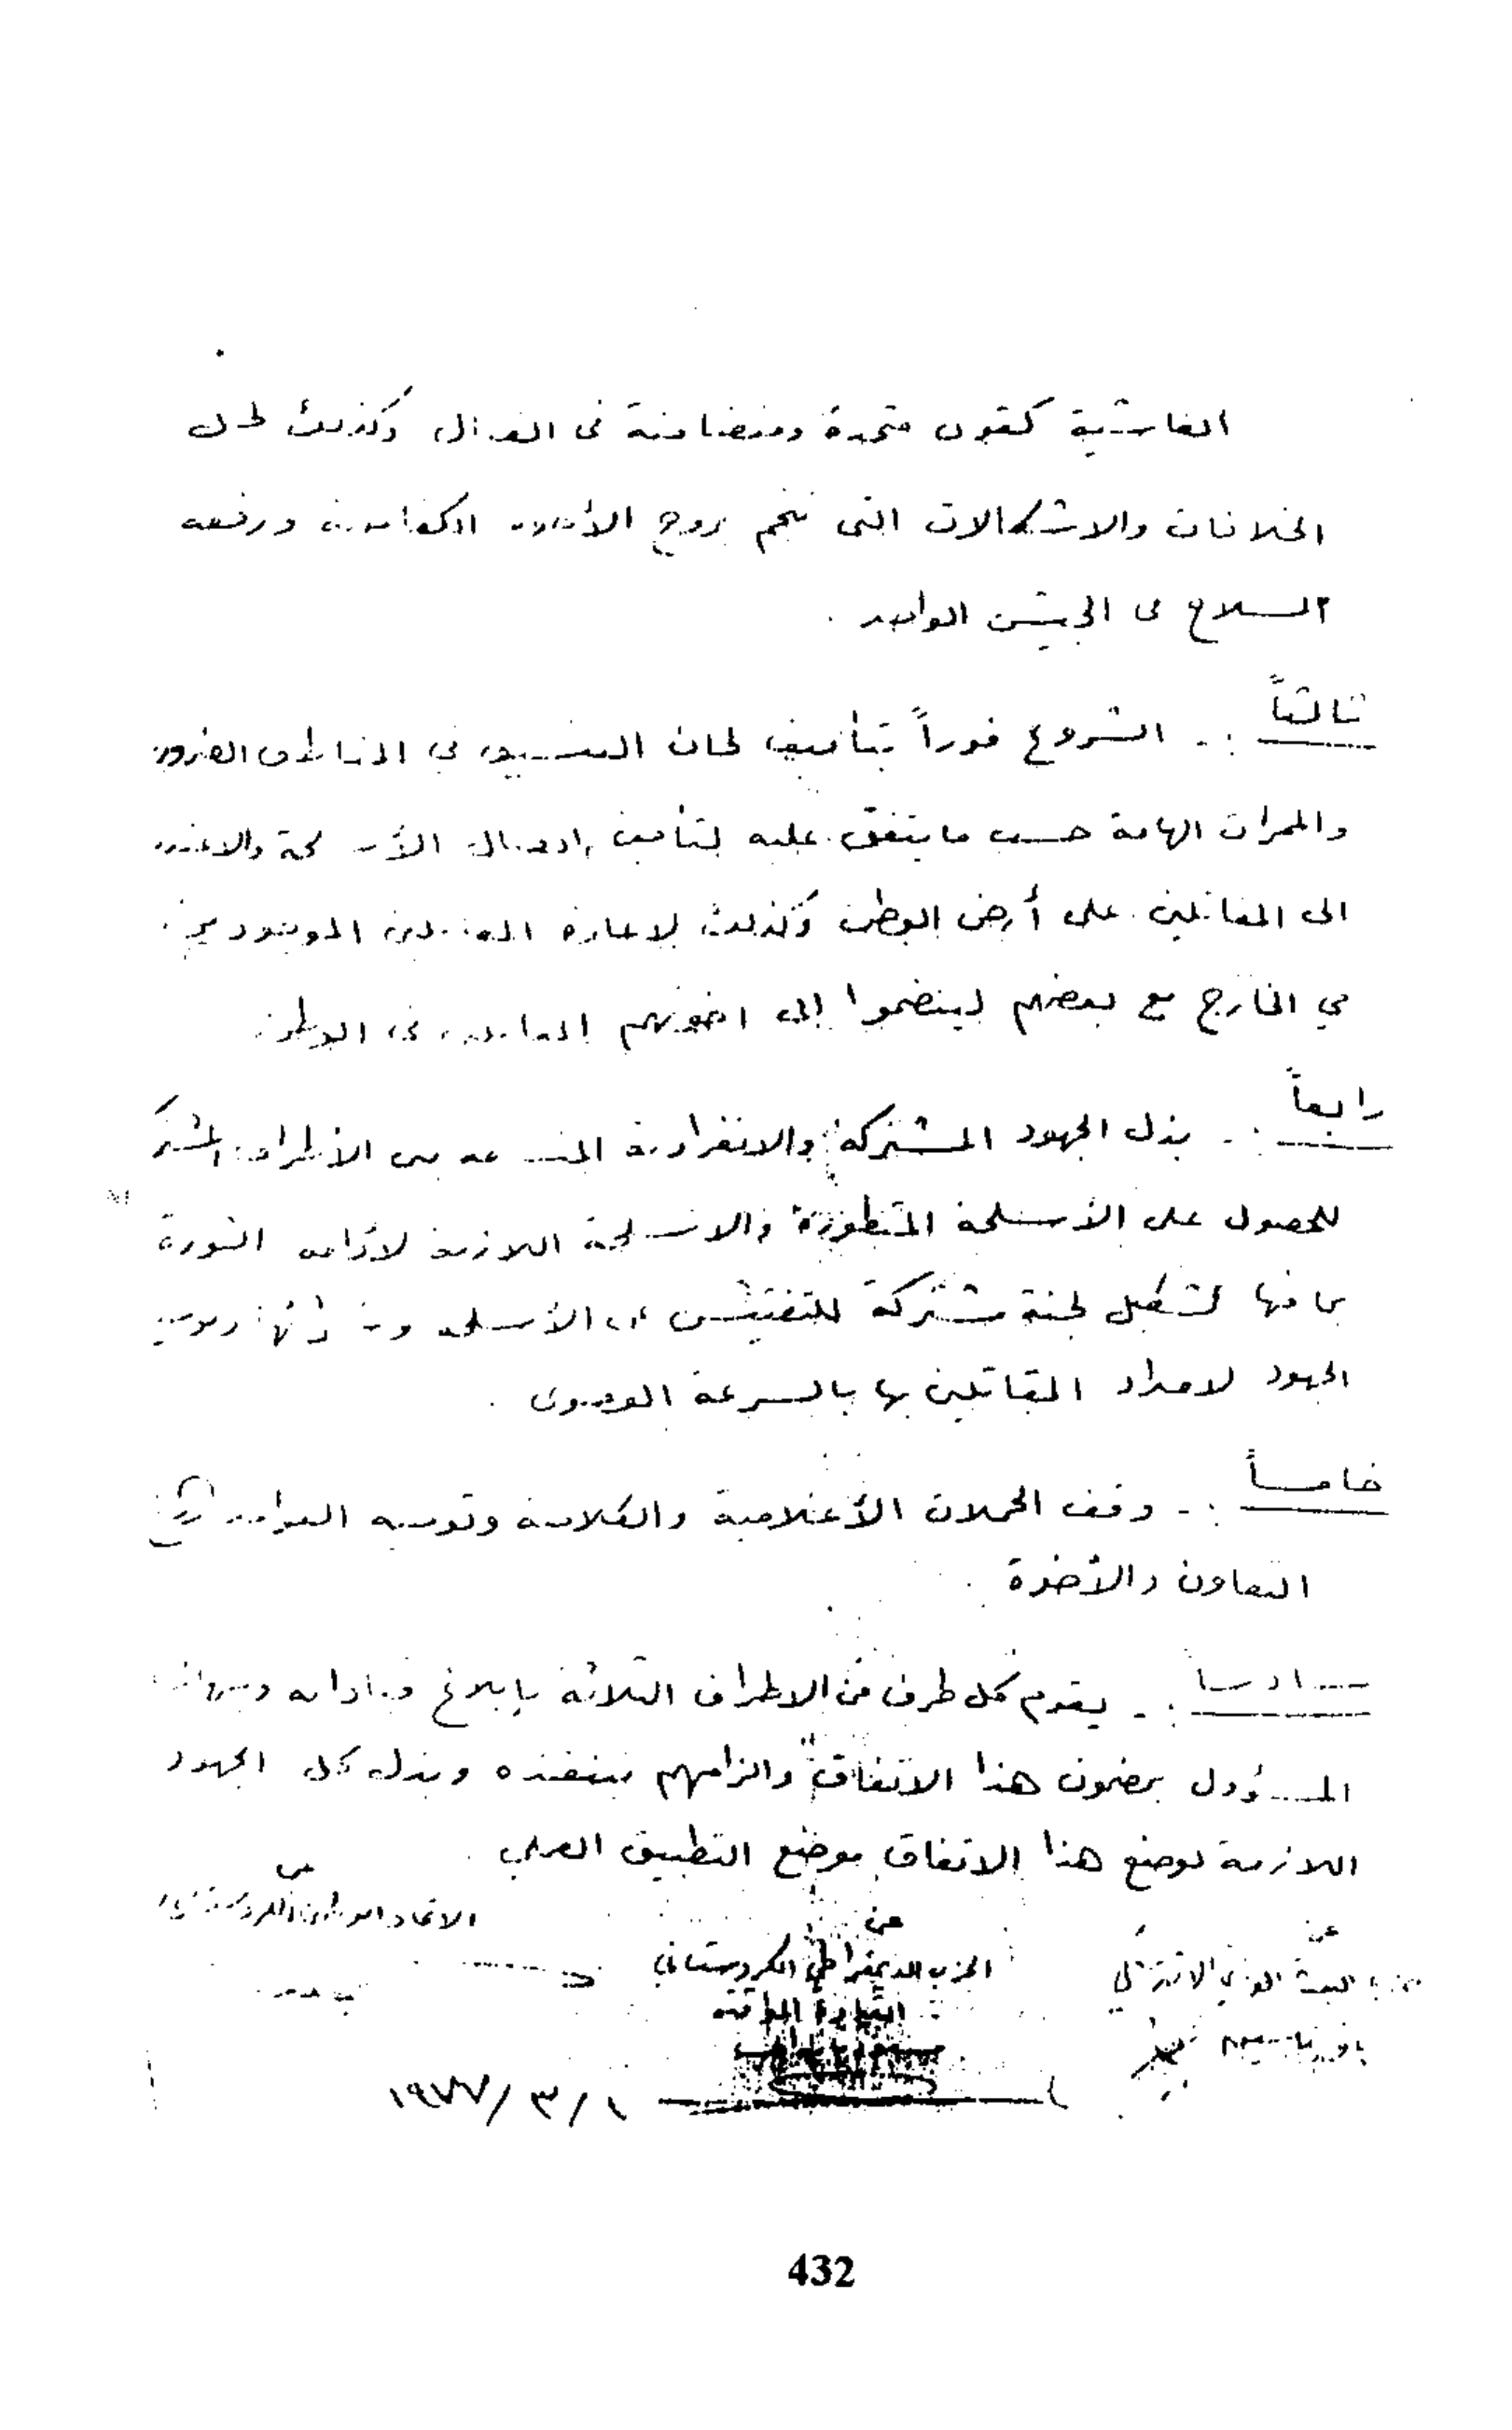 الفاشية كقوى متحدة ومتضامنة في القتال وكذلك لحل
الخلافات والاشكالات التي تنجم بروح الأخوة الكفاحية ورفقة
السلاح في الجيش الواحد .
ثالثاً :- الشروع فوراً بتأليف لجان التنسيق في المناطق الضرورية
والممرات الهامة حسب ما يتفق عليه لتأمين إيصال الأسلحة والاعتدة
الى المقاتلين على أرض الوطن وكذلك لاعادة المقاتلين الموجودين
في الخارج مع بعضهم لينضموا إلى اخوتهم المقاتلين في الوطن .
رابعاً :- بذل الجهود المشتركة والانفرادية المنسقة بين الأطراف
للحصول على الأسلحة المتطورة والاسلحة اللازمة لأدامة الثورة
بما فيها تشكيل لجنة مشتركة للتفتيش عن الأسلحة
الجهود لامداد المقاتلين بها بالسرعة القصوى .
خامساً :- وقف الحملات الأعلامية والكلامية وتوجيه القواعد
التعاون والأخوة .
سادساً :- يقوم كل طرف من الاطراف الثلاثة بإبلاغ قياداته
المسؤول بمضمون هذا الاتفاق والزامهم بتنفيذه وبذل كل الجهود
اللازمة لوضع هذا الاتفاق موضع التطبيق العملي .
عن
حزب البعث العربي الاشتراكي
باقر ياسين
عن
الحزب الديمقراطي الكردستاني
القيادة المؤقتة
عن
الاتحاد الوطني الكردستاني
١٩٧٧/٣/١
432